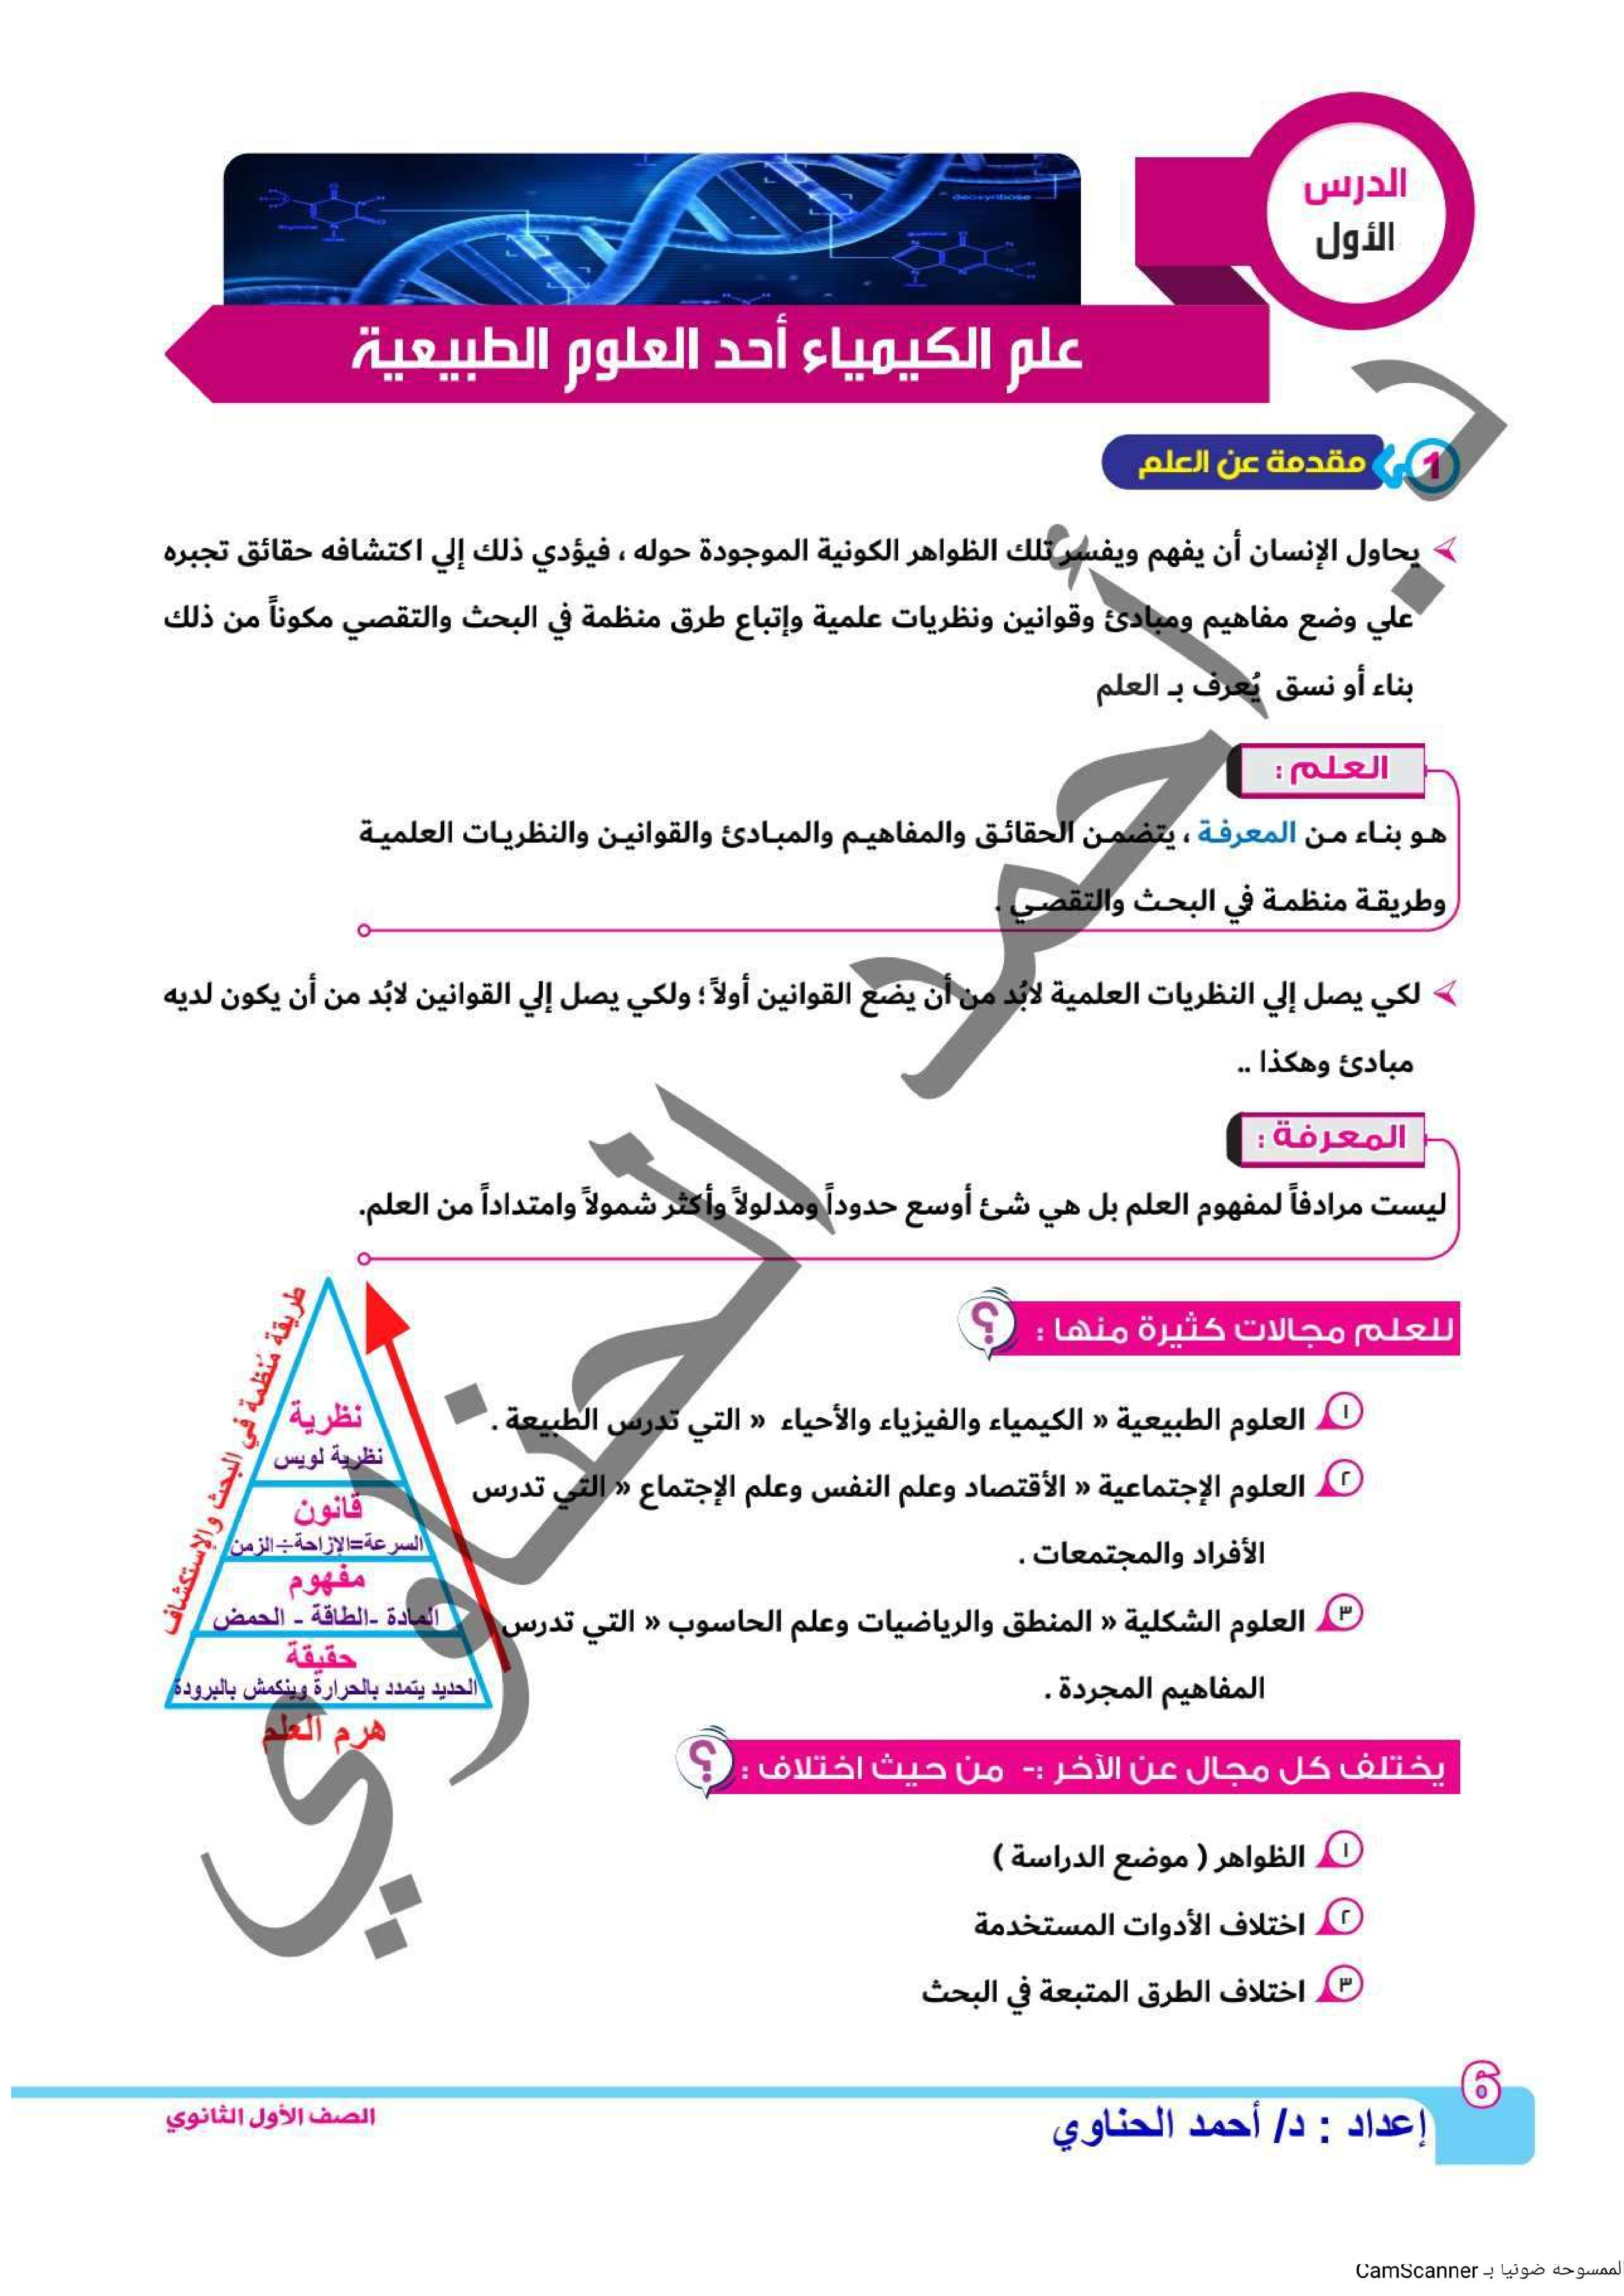 الدرس
الأول
deoxyribose
علم الكيمياء أحد العلوم الطبيعية
1
مقدمة عن العلم
يحاول الإنسان أن يفهم ويفسر تلك الظواهر الكونية الموجودة حوله ، فيؤدي ذلك إلي اكتشافه حقائق تجبره
علي وضع مفاهيم ومبادئ وقوانين ونظريات علمية وإتباع طرق منظمة في البحث والتقصي مكوناً من ذلك
بناء أو نسق يُعرف بـ العلم
العلم :
هو بناء من المعرفة ، يتضمن الحقائق والمفاهيم والمبادئ والقوانين والنظريات العلمية
وطريقة منظمة في البحث والتقصي .
لكي يصل إلي النظريات العلمية لابُد من أن يضع القوانين أولاً ؛ ولكي يصل إلي القوانين لابُد من أن يكون لديه
مبادئ وهكذا ..
المعرفة :
ليست مرادفاً لمفهوم العلم بل هي شئ أوسع حدوداً ومدلولاً وأكثر شمولاً وامتداداً من العلم.
للعلم مجالات كثيرة منها :
؟
١ العلوم الطبيعية » الكيمياء والفيزياء والأحياء » التي تدرس الطبيعة .
٢ العلوم الإجتماعية » الأقتصاد وعلم النفس وعلم الإجتماع » التي تدرس
الأفراد والمجتمعات .
٣ العلوم الشكلية » المنطق والرياضيات وعلم الحاسوب » التي تدرس
المفاهيم المجردة .
طريقة مُنظمة في البحث والإستكشاف
نظرية
نظرية لويس
قانون
السرعة=الإزاحة÷الزمن
مفهوم
المادة -الطاقة - الحمض
حقيقة
الحديد يتمدد بالحرارة وينكمش بالبرودة
هرم العلم
يختلف كل مجال عن الآخر :- من حيث اختلاف :
؟
١ الظواهر ( موضع الدراسة )
٢ اختلاف الأدوات المستخدمة
٣ اختلاف الطرق المتبعة في البحث
د. أحمد الحناوي
6
إعداد : د/ أحمد الحناوي
الصف الأول الثانوي
لممسوحة ضوئيا بـ CamScanner